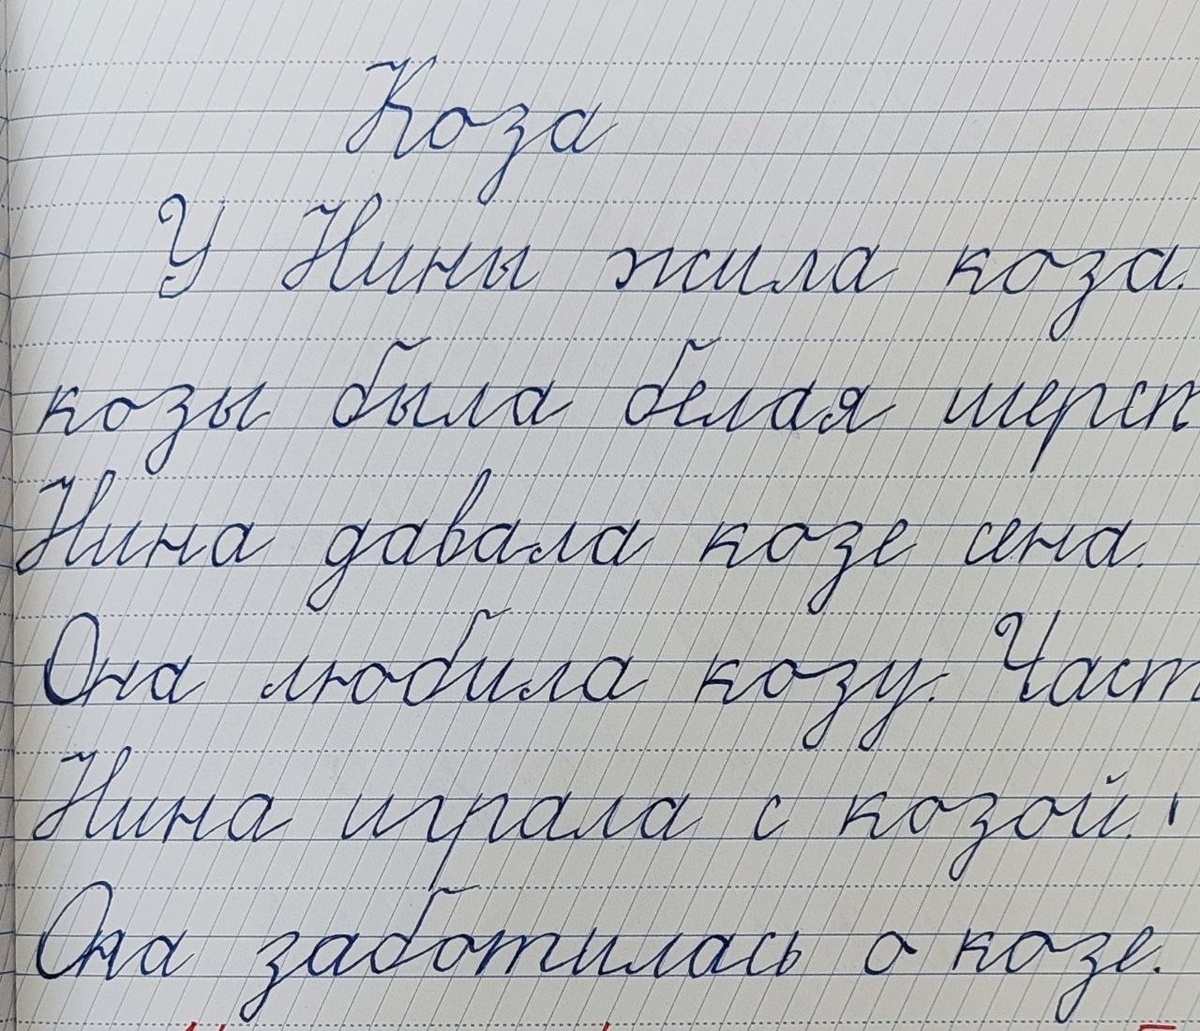 Коза
У Нины жила коза.
козы была белая шерст
Нина давала козе сена.
Она любила козу. Част
Нина играла с козой.
Она заботилась о козе.